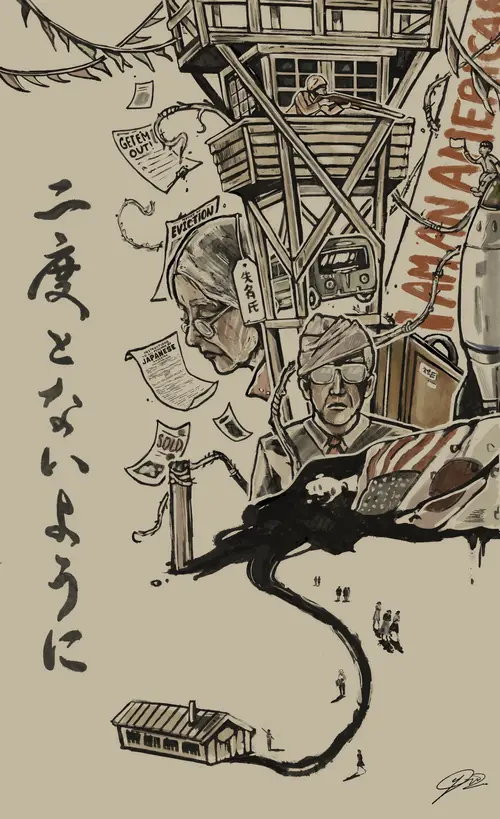 二度とないように
GET'EM
OUT!
EVICTION
JAPANESE
SOLD
失名氏
I AM AN AMERICAN